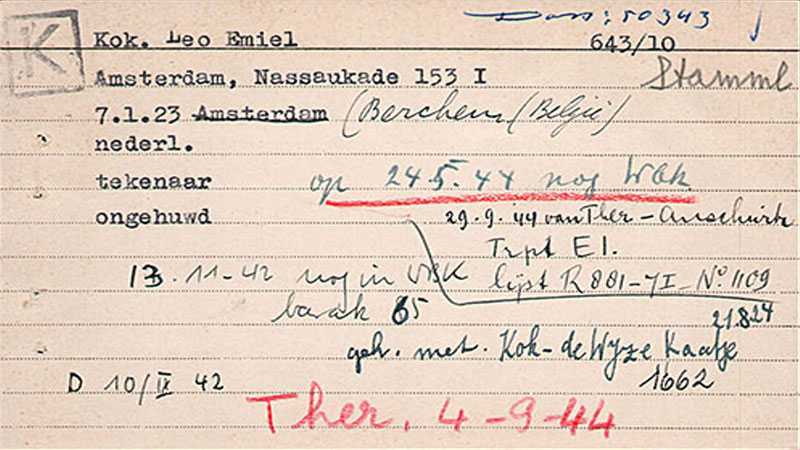 Doss: 50343
K
Kok. Leo Emiel 643/10
Amsterdam, Nassaukade 153 I Stamml
7.1.23 Amsterdam (Berchem (België)
nederl.
tekenaar op 24.5.44 nog Wbk
ongehuwd 29.9.'44 van Ther-Auschwitz
Trpt El.
13.11-42 nog in WBK lijst R881-7I-No. 1109
barak 65 21.8.24
geh. met. Kok-de Wijze Kaatje
D 10/IX 42 1662
Ther. 4-9-44